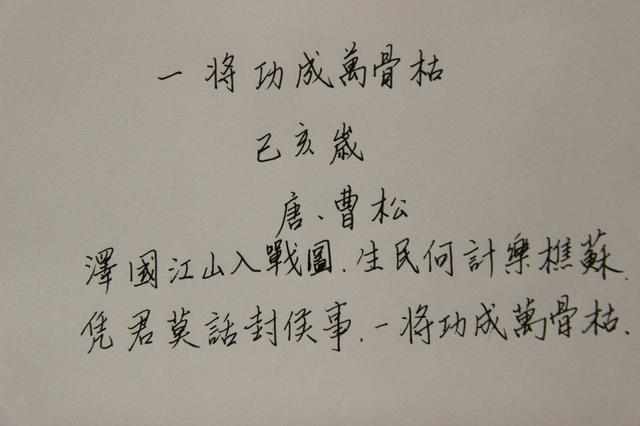 一将功成萬骨枯
己亥歳
唐、曹松
澤國江山入戰圖.生民何計樂樵蘇.
凭君莫話封侯事.一将功成萬骨枯.